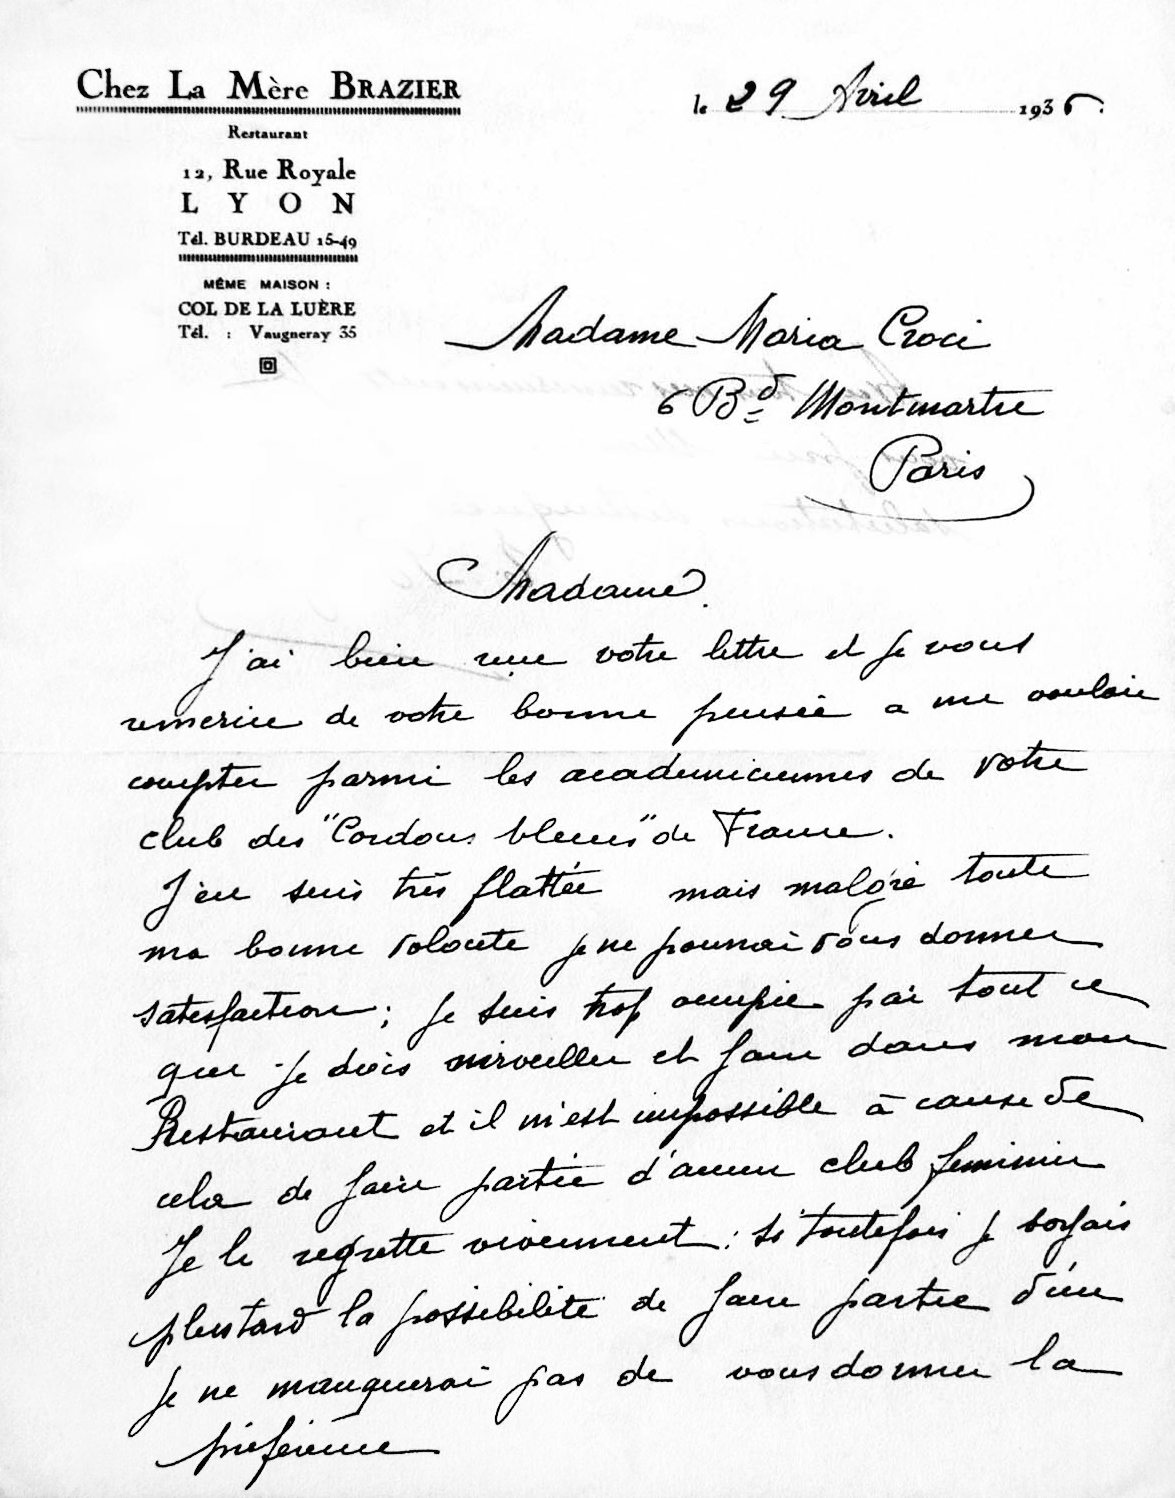 Chez La Mère BRAZIER
Restaurant
12, Rue Royale
LYON
Tél. BURDEAU 15-49
MÊME MAISON :
COL DE LA LUÈRE
Tél. : Vaugneray 35
le 29 Avril 1936.
Madame Maria Croci
6 Bd Montmartre
Paris
Madame.
J'ai bien reçue votre lettre et je vous
remercie de votre bonne pensée a me vouloir
compter parmi les academiciennes de votre
club des "Cordons bleus" de France.
J'en suis très flattée mais malgré toute
ma bonne volonte je ne pourrai vous donner
satisfaction ; je suis trop occupée par tout ce
que je dois surveiller et faire dans mon
Restaurant et il m'est impossible à cause de
cela de faire partie d'aucun club feminin
Je le regrette vivement : si toutefois je voyais
plus tard la possibilite de faire partie d'un
je ne manquerai pas de vous donner la
préférence